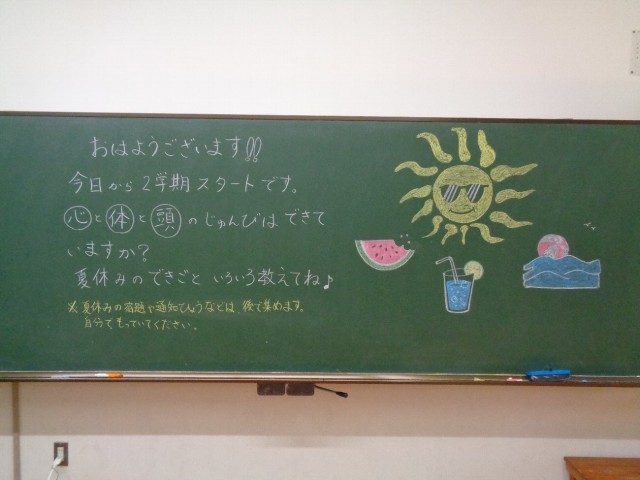 おはようございます!!
今日から2学期スタートです。
心と体と頭のじゅんびはできて
いますか?
夏休みのできごといろいろ教えてね♪
※夏休みの宿題や通知ひょうなどは、後で集めます。
自分でもっていてください。